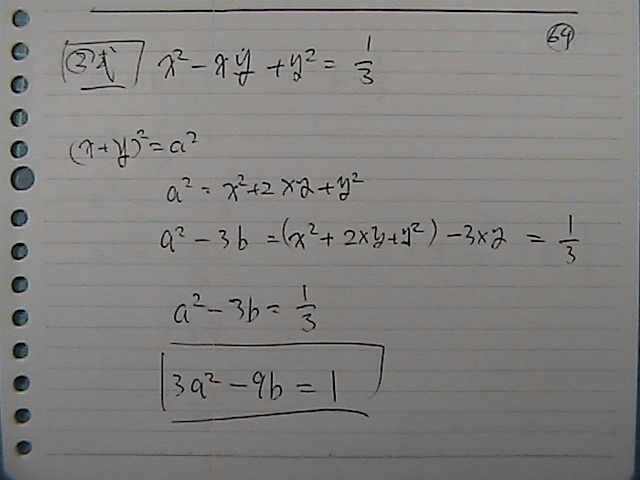 64
③式 x² - xy + y² = 1/3
(x+y)² = a²
a² = x²+2xy+y²
a² - 3b = (x²+2xy+y²) - 3xy = 1/3
a² - 3b = 1/3
3a² - 9b = 1